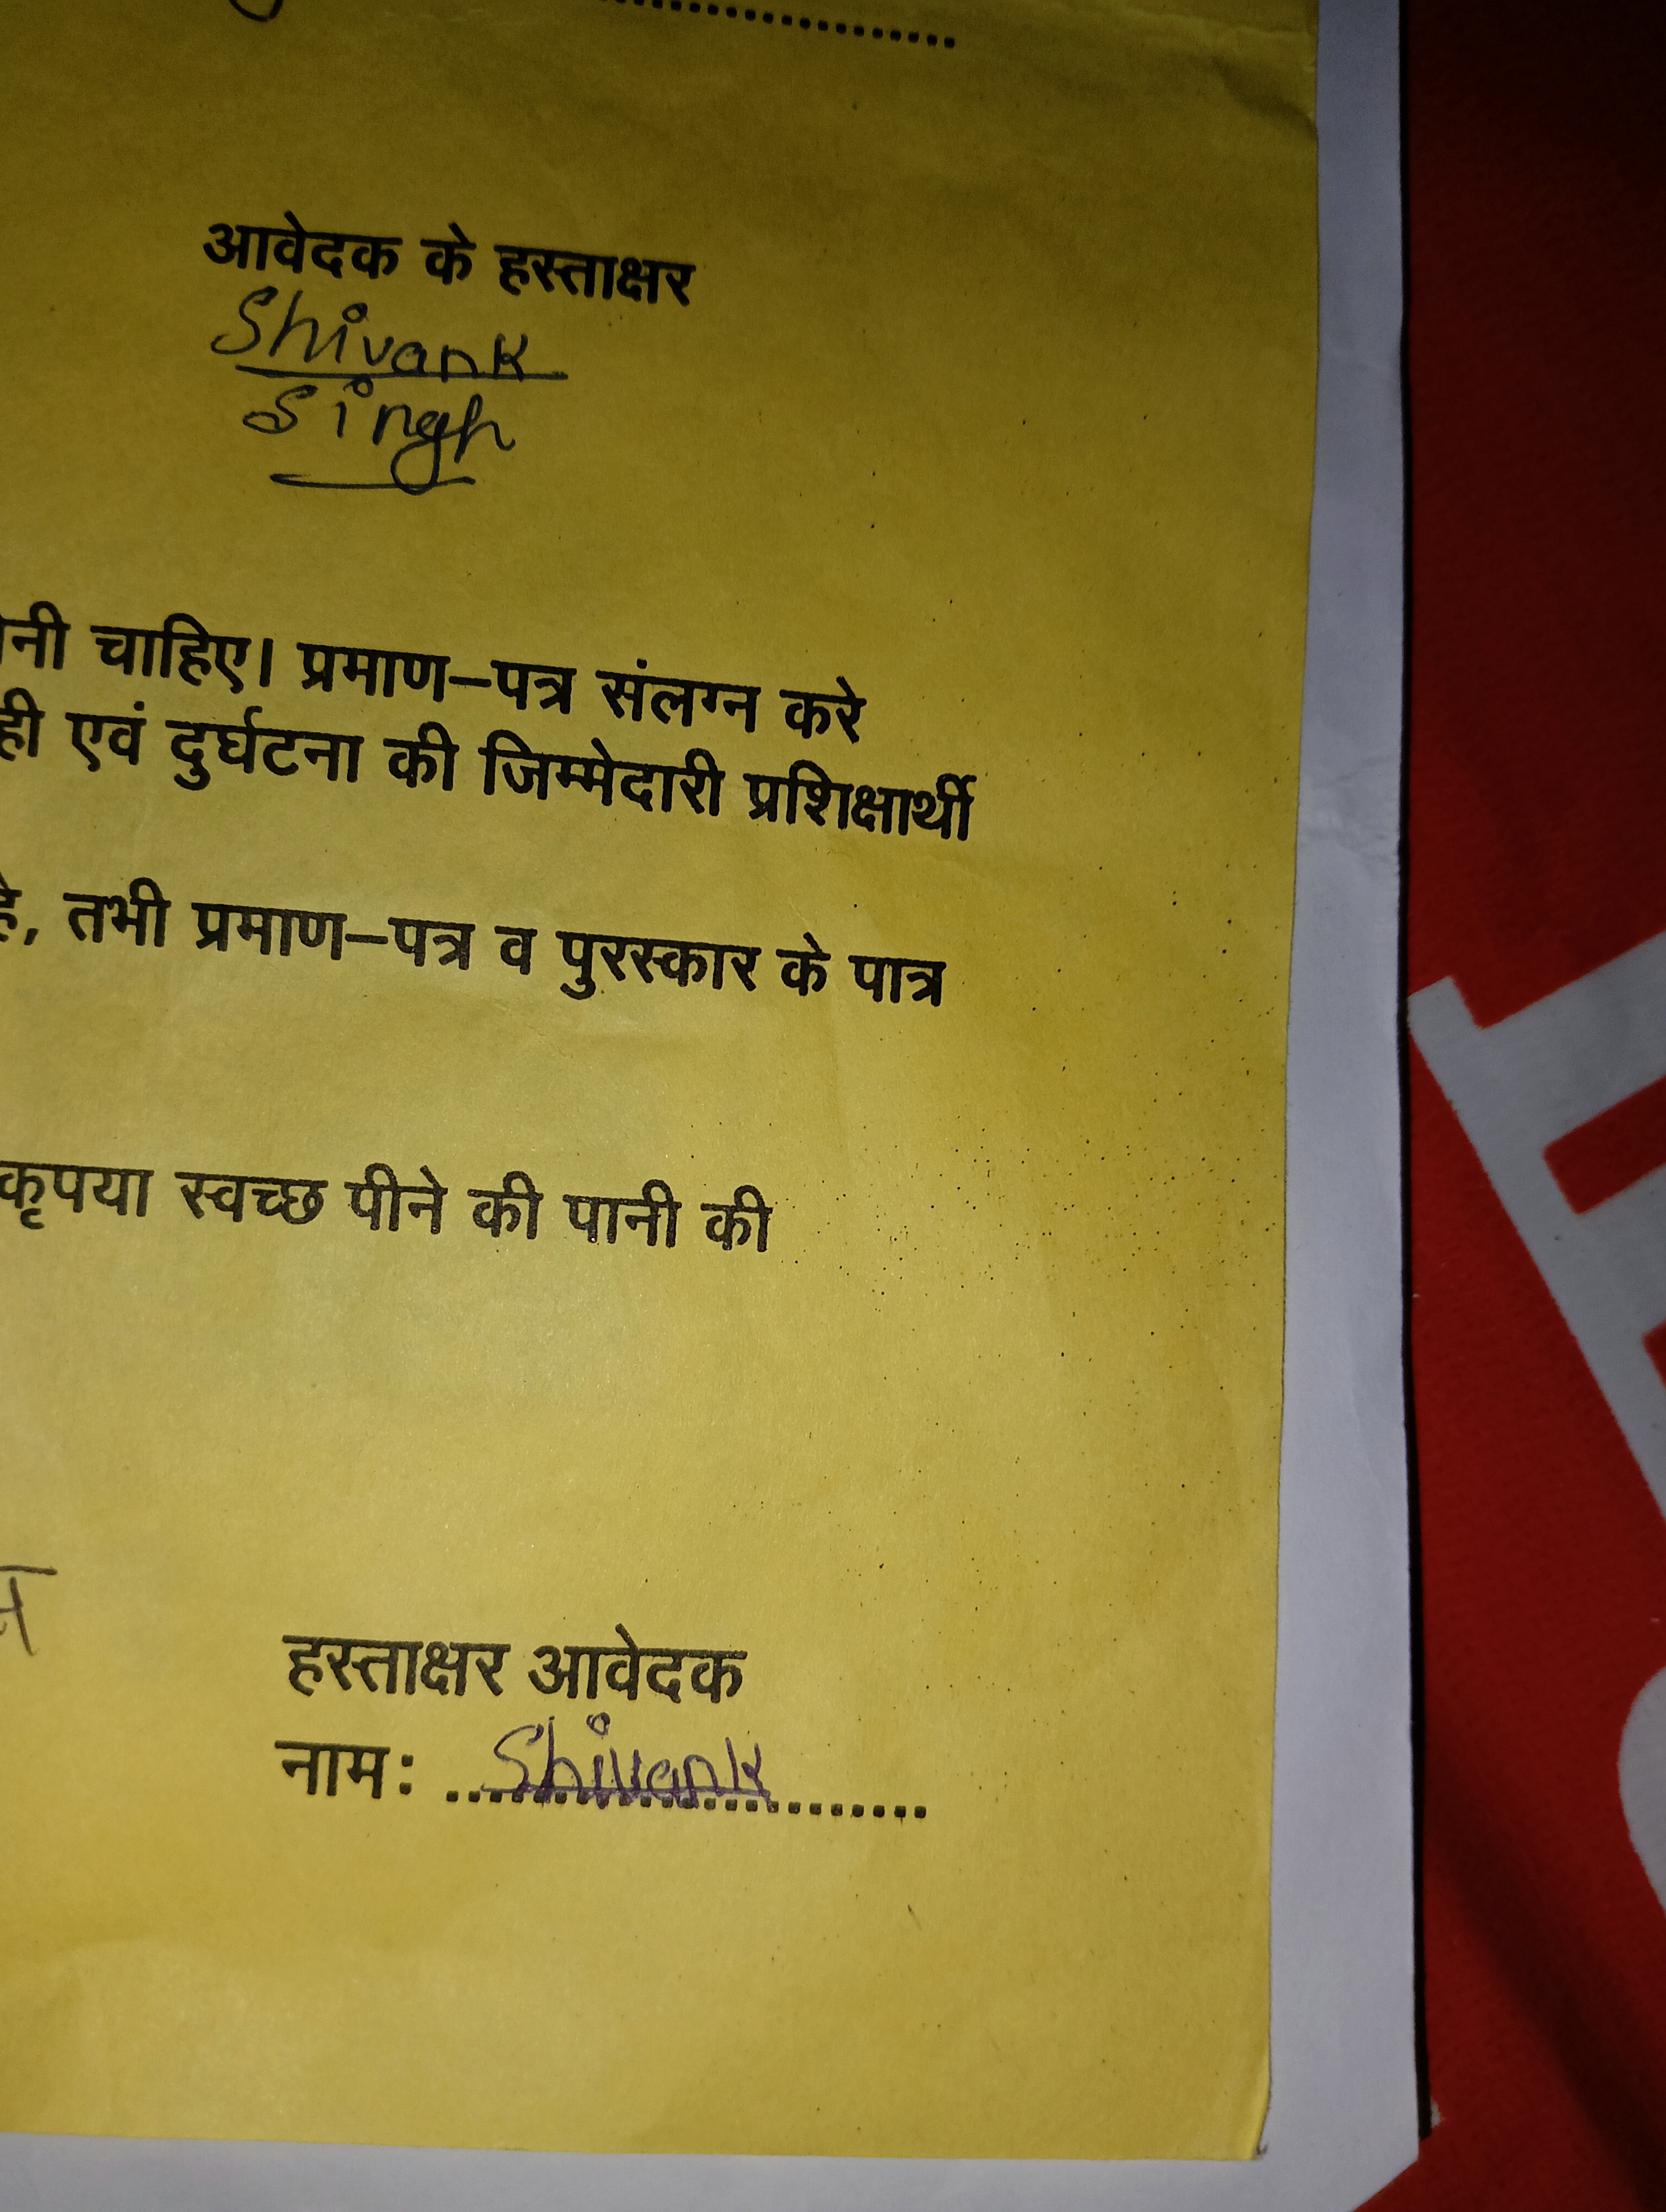 आवेदक के हस्ताक्षर
Shivank
Singh
चाहिए। प्रमाण–पत्र संलग्न करे
एवं दुर्घटना की जिम्मेदारी प्रशिक्षार्थी
तभी प्रमाण–पत्र व पुरस्कार के पात्र
कृपया स्वच्छ पीने की पानी की
हस्ताक्षर आवेदक
नाम: Shivank